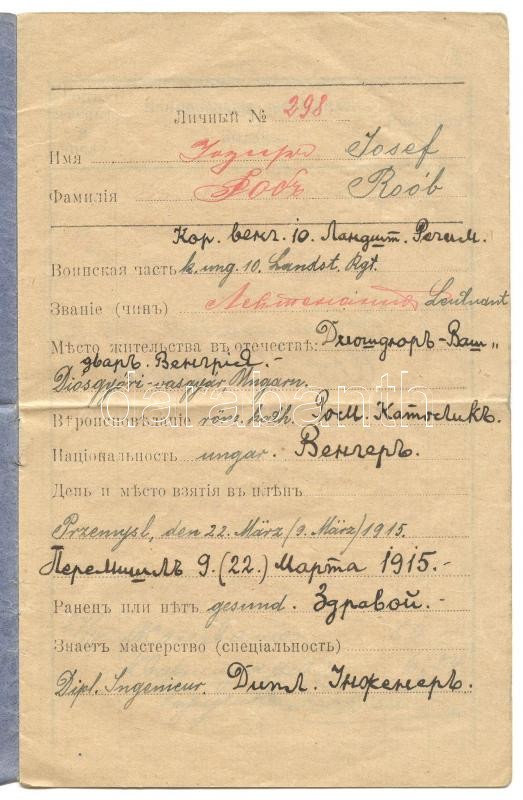 Личный № 298
Имя Іозефъ Josef
Фамилія Рообъ Roób
Кор. венг. 10. Ландшт. Регим.
Воинская часть k. ung. 10. Landst. Rgt.
Званіе (чинъ) Лейтенантъ Leutnant
Мѣсто жительства въ отечествѣ: Диошдиоръ-Ваш„
дваръ. Венгрія.-
Diósgyőri-vasgyár Ungarn.
Вѣроисповѣданіе röm. kath. Ром. Католикъ.
Національность ungar. Венгеръ.
День и мѣсто взятія въ плѣнъ
Przemysl, den 22. März (9. März) 1915.
Перемишль 9. (22.) Марта 1915.-
Раненъ или нѣтъ gesund. Здравой.-
Знаетъ мастерство (спеціальность)
Dipl. Ingenieur. Дипл. Інженеръ.
darabanth